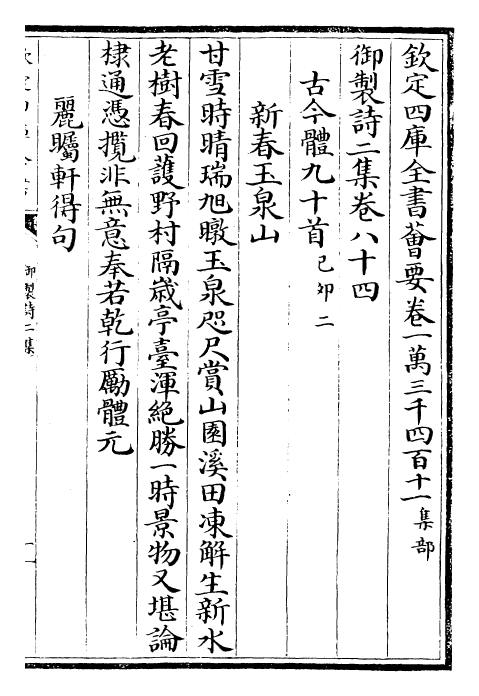 欽定四庫全書薈要卷一萬三千四百十一集部
御製詩二集卷八十四
古今體九十首己卯二
新春玉泉山
甘雪時晴瑞旭暾玉泉咫尺賞山園溪田凍解生新水
老樹春回護野村隔嵗亭臺渾絶勝一時景物又堪論
棣通憑攬非無意奉若乾行勵體元
麗矚軒得句
御製詩二集